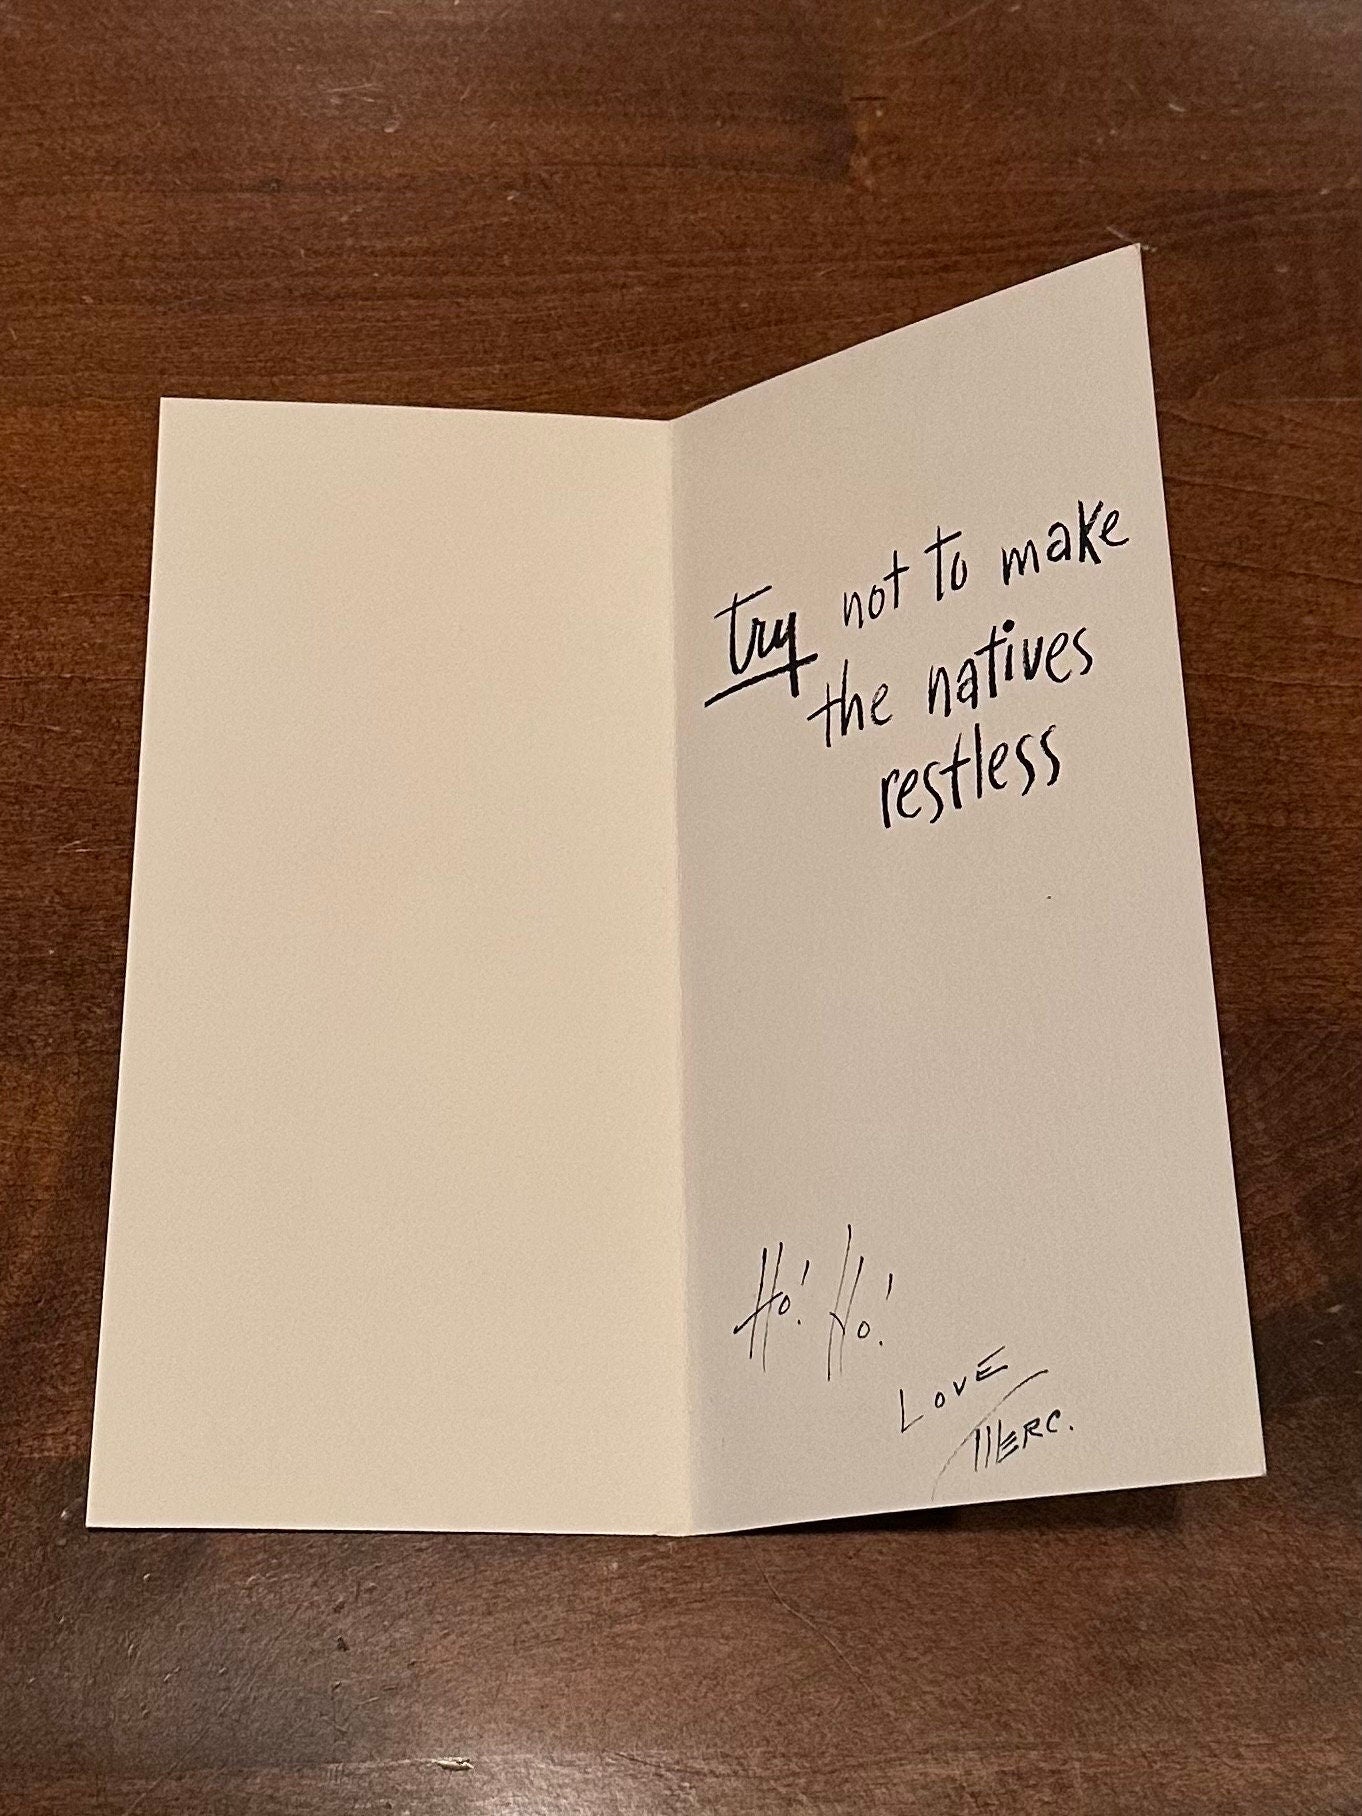 try not to make
the natives
restless
Ho! Ho!
LOVE
MERC.